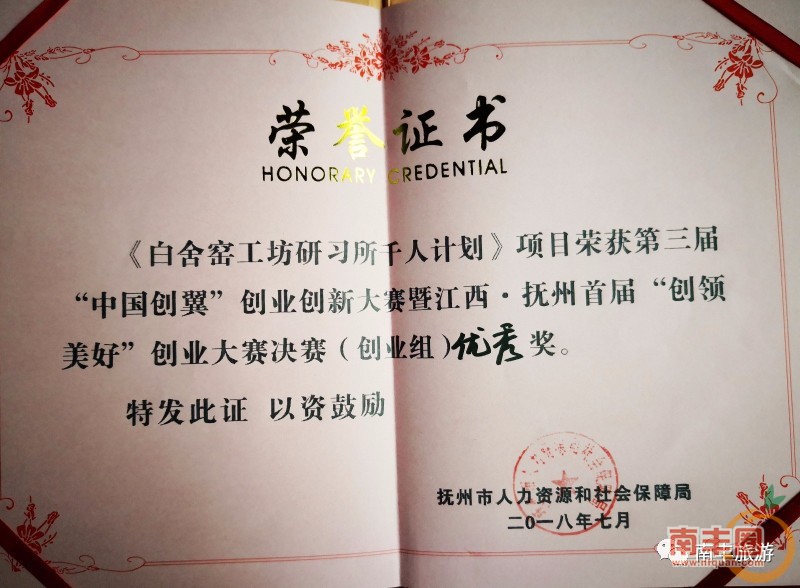 荣誉证书
HONORARY CREDENTIAL
《白舍窑工坊研习所千人计划》项目荣获第三届
“中国创翼”创业创新大赛暨江西·抚州首届“创领
美好”创业大赛决赛(创业组)优秀奖。
特发此证 以资鼓励
抚州市人力资源和社会保障局
二〇一八年七月
南丰圈
南丰旅游
www.nfquan.com